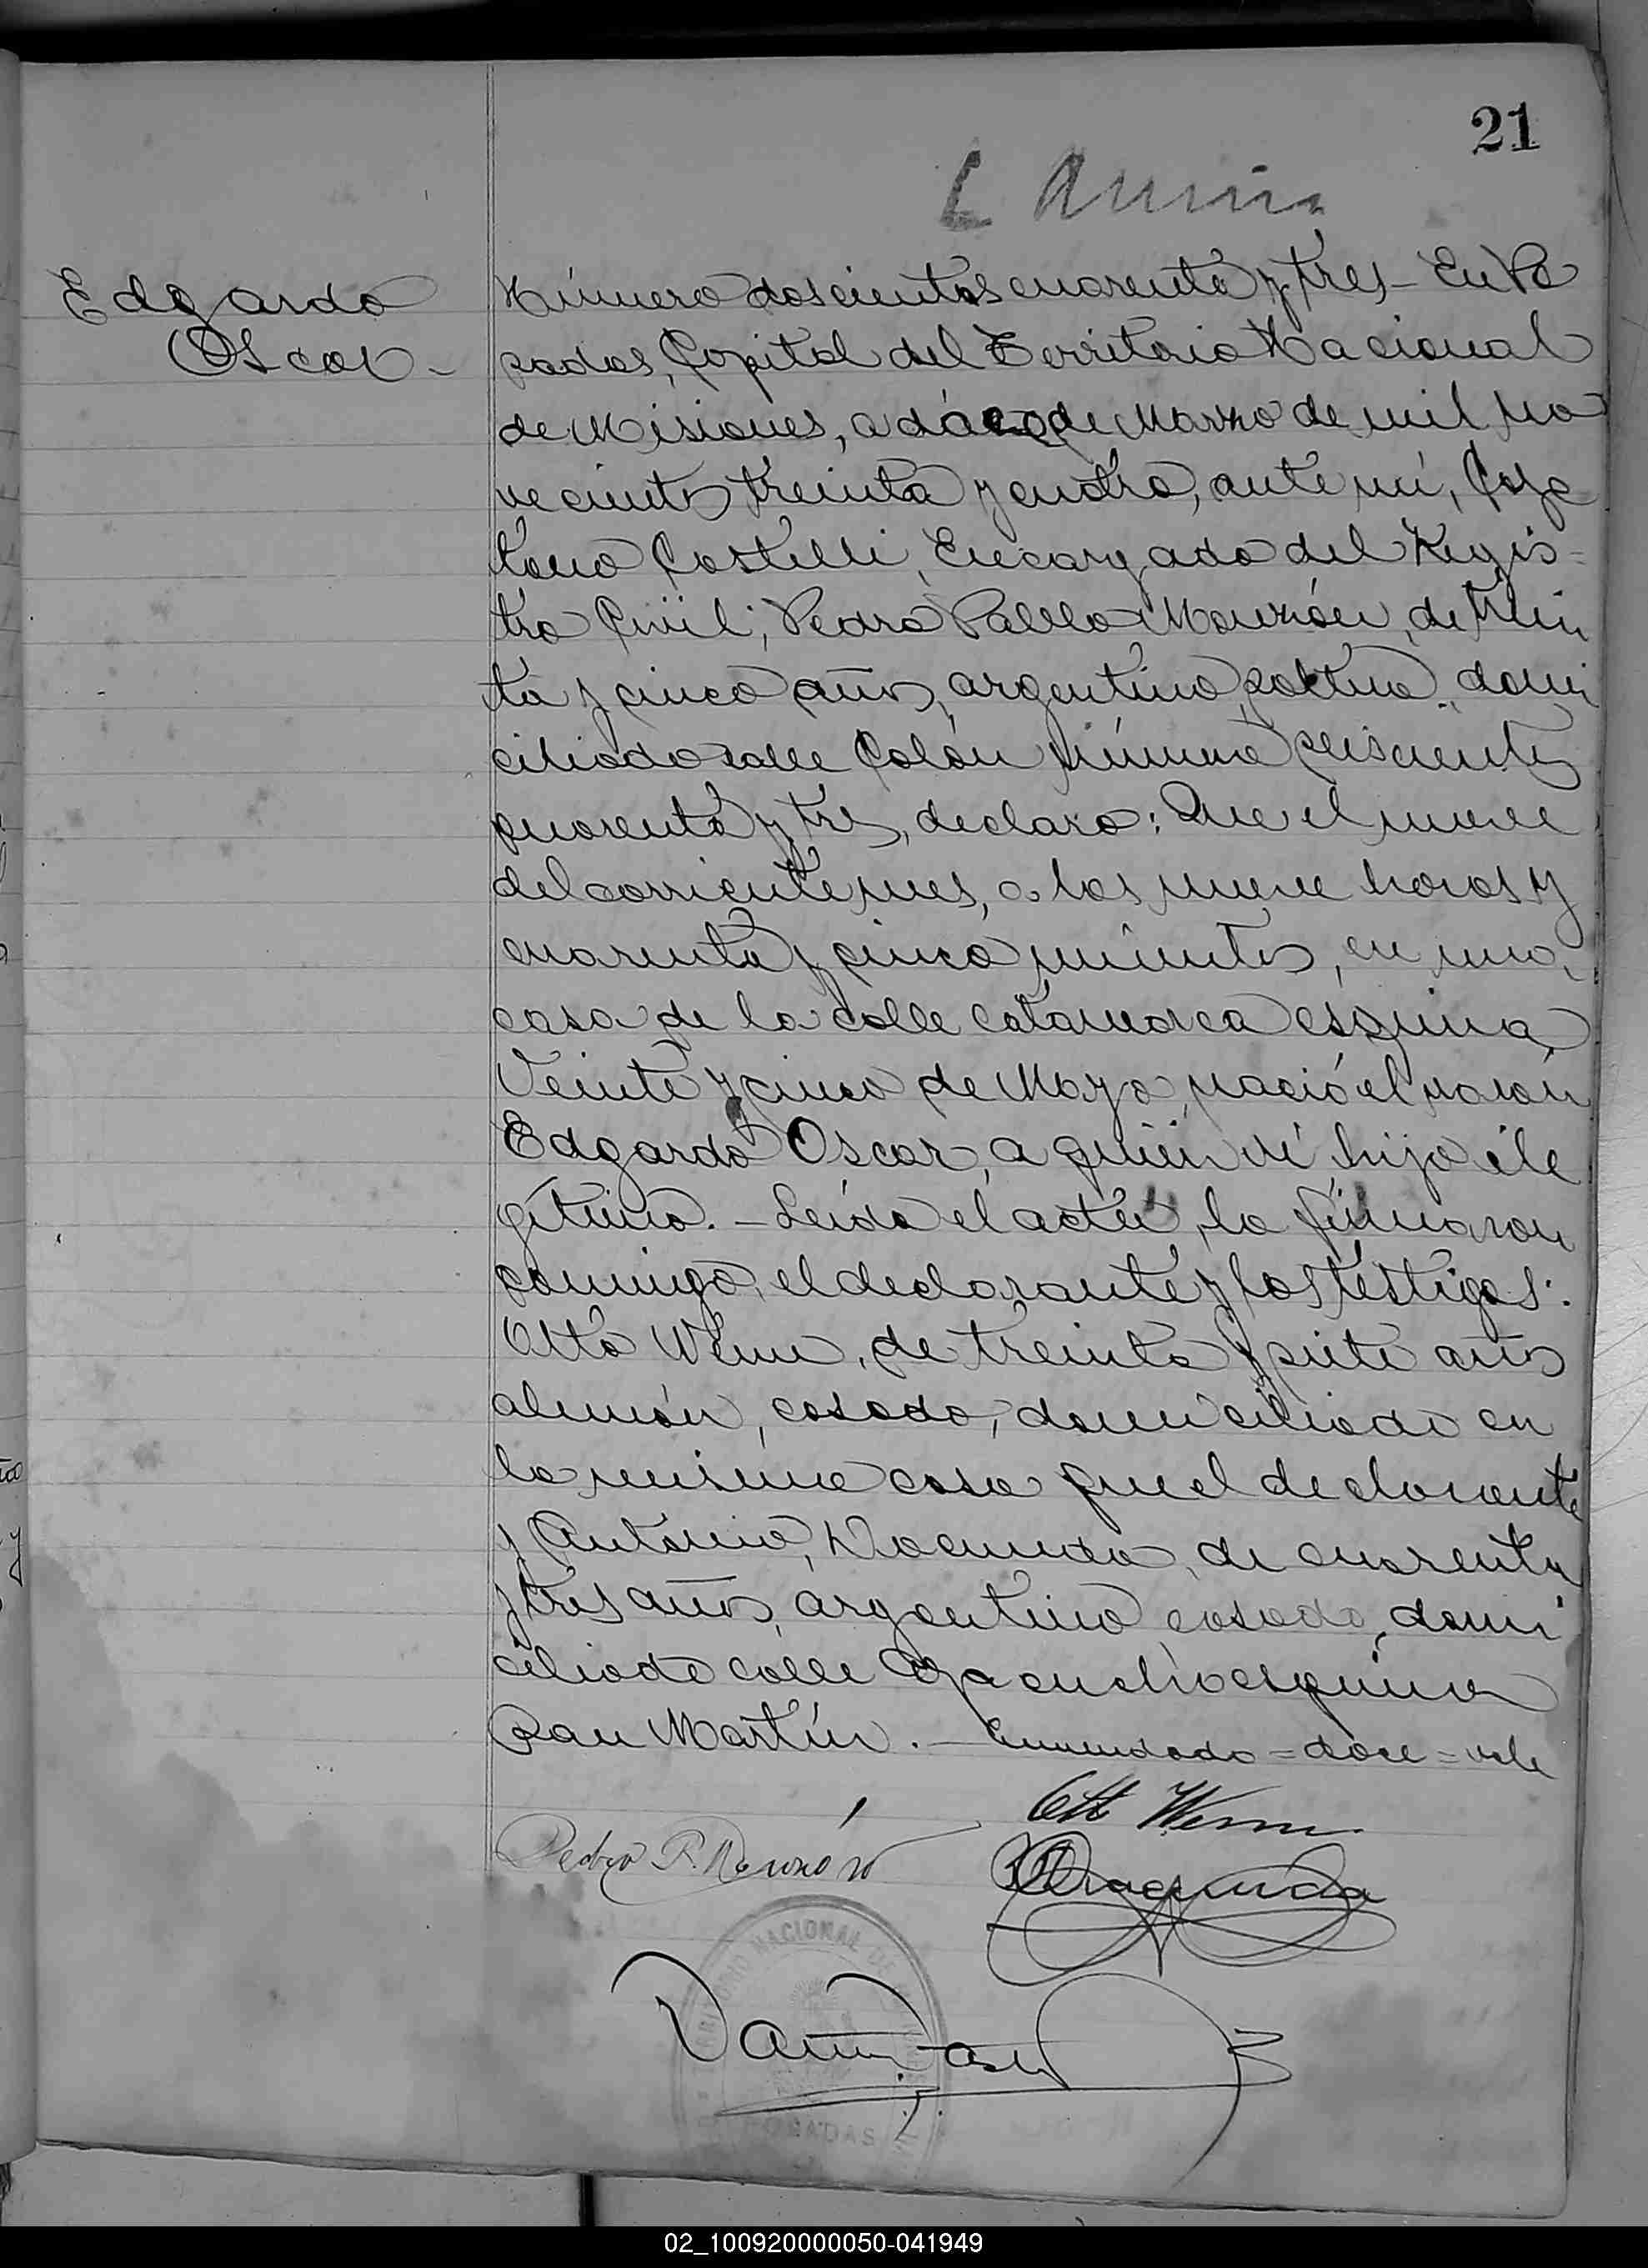 21
Edgardo
Oscar -
Número doscientos cuarenta y tres - En Po
sadas, Capital del Territorio Nacional
de Misiones, a doce de Marzo de mil no
vecientos treinta y cuatro, ante mí, Caye
tano Castelli, Encargado del Regis-
tro Civil; Pedro Pablo Monzón, de trein
ta y cinco años, argentino, soltero, domi
ciliado calle Colón número seiscientos
cuarenta y tres, declaro: Que el nueve
del corriente mes, a las nueve horas y
cuarenta y cinco minutos, en una
casa de la calle Catamarca esquina
Veinte y cinco de Mayo, nació el varón
Edgardo Oscar, a quién ví hijo ile
gítimo. - Leída el acta, la firmaron
conmigo, el declarante y los testigos:
Otto Wenn, de treinta y siete años
alemán, casado, domiciliado en
la misma casa que el declarante
y Antonio, de cuarenta
y tres años, argentino casado, domi
ciliado calle Ayacucho esquina
San Martín. - Enmendado = doce = vale
Otto
Pedro P. Monzón
TERRITORIO NACIONAL DE
POSADAS
02_100920000050-041949